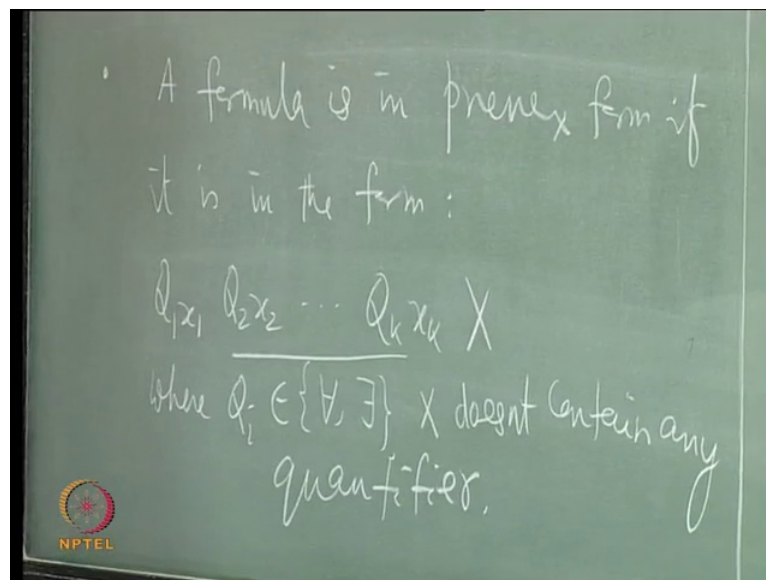 . A formula is in prenex form if
it is in the form :
Q₁x₁ Q₂x₂ ... Qₖxₖ X
where Qᵢ ∈ {∀, ∃} X doesnt contain any
quantifier.
NPTEL